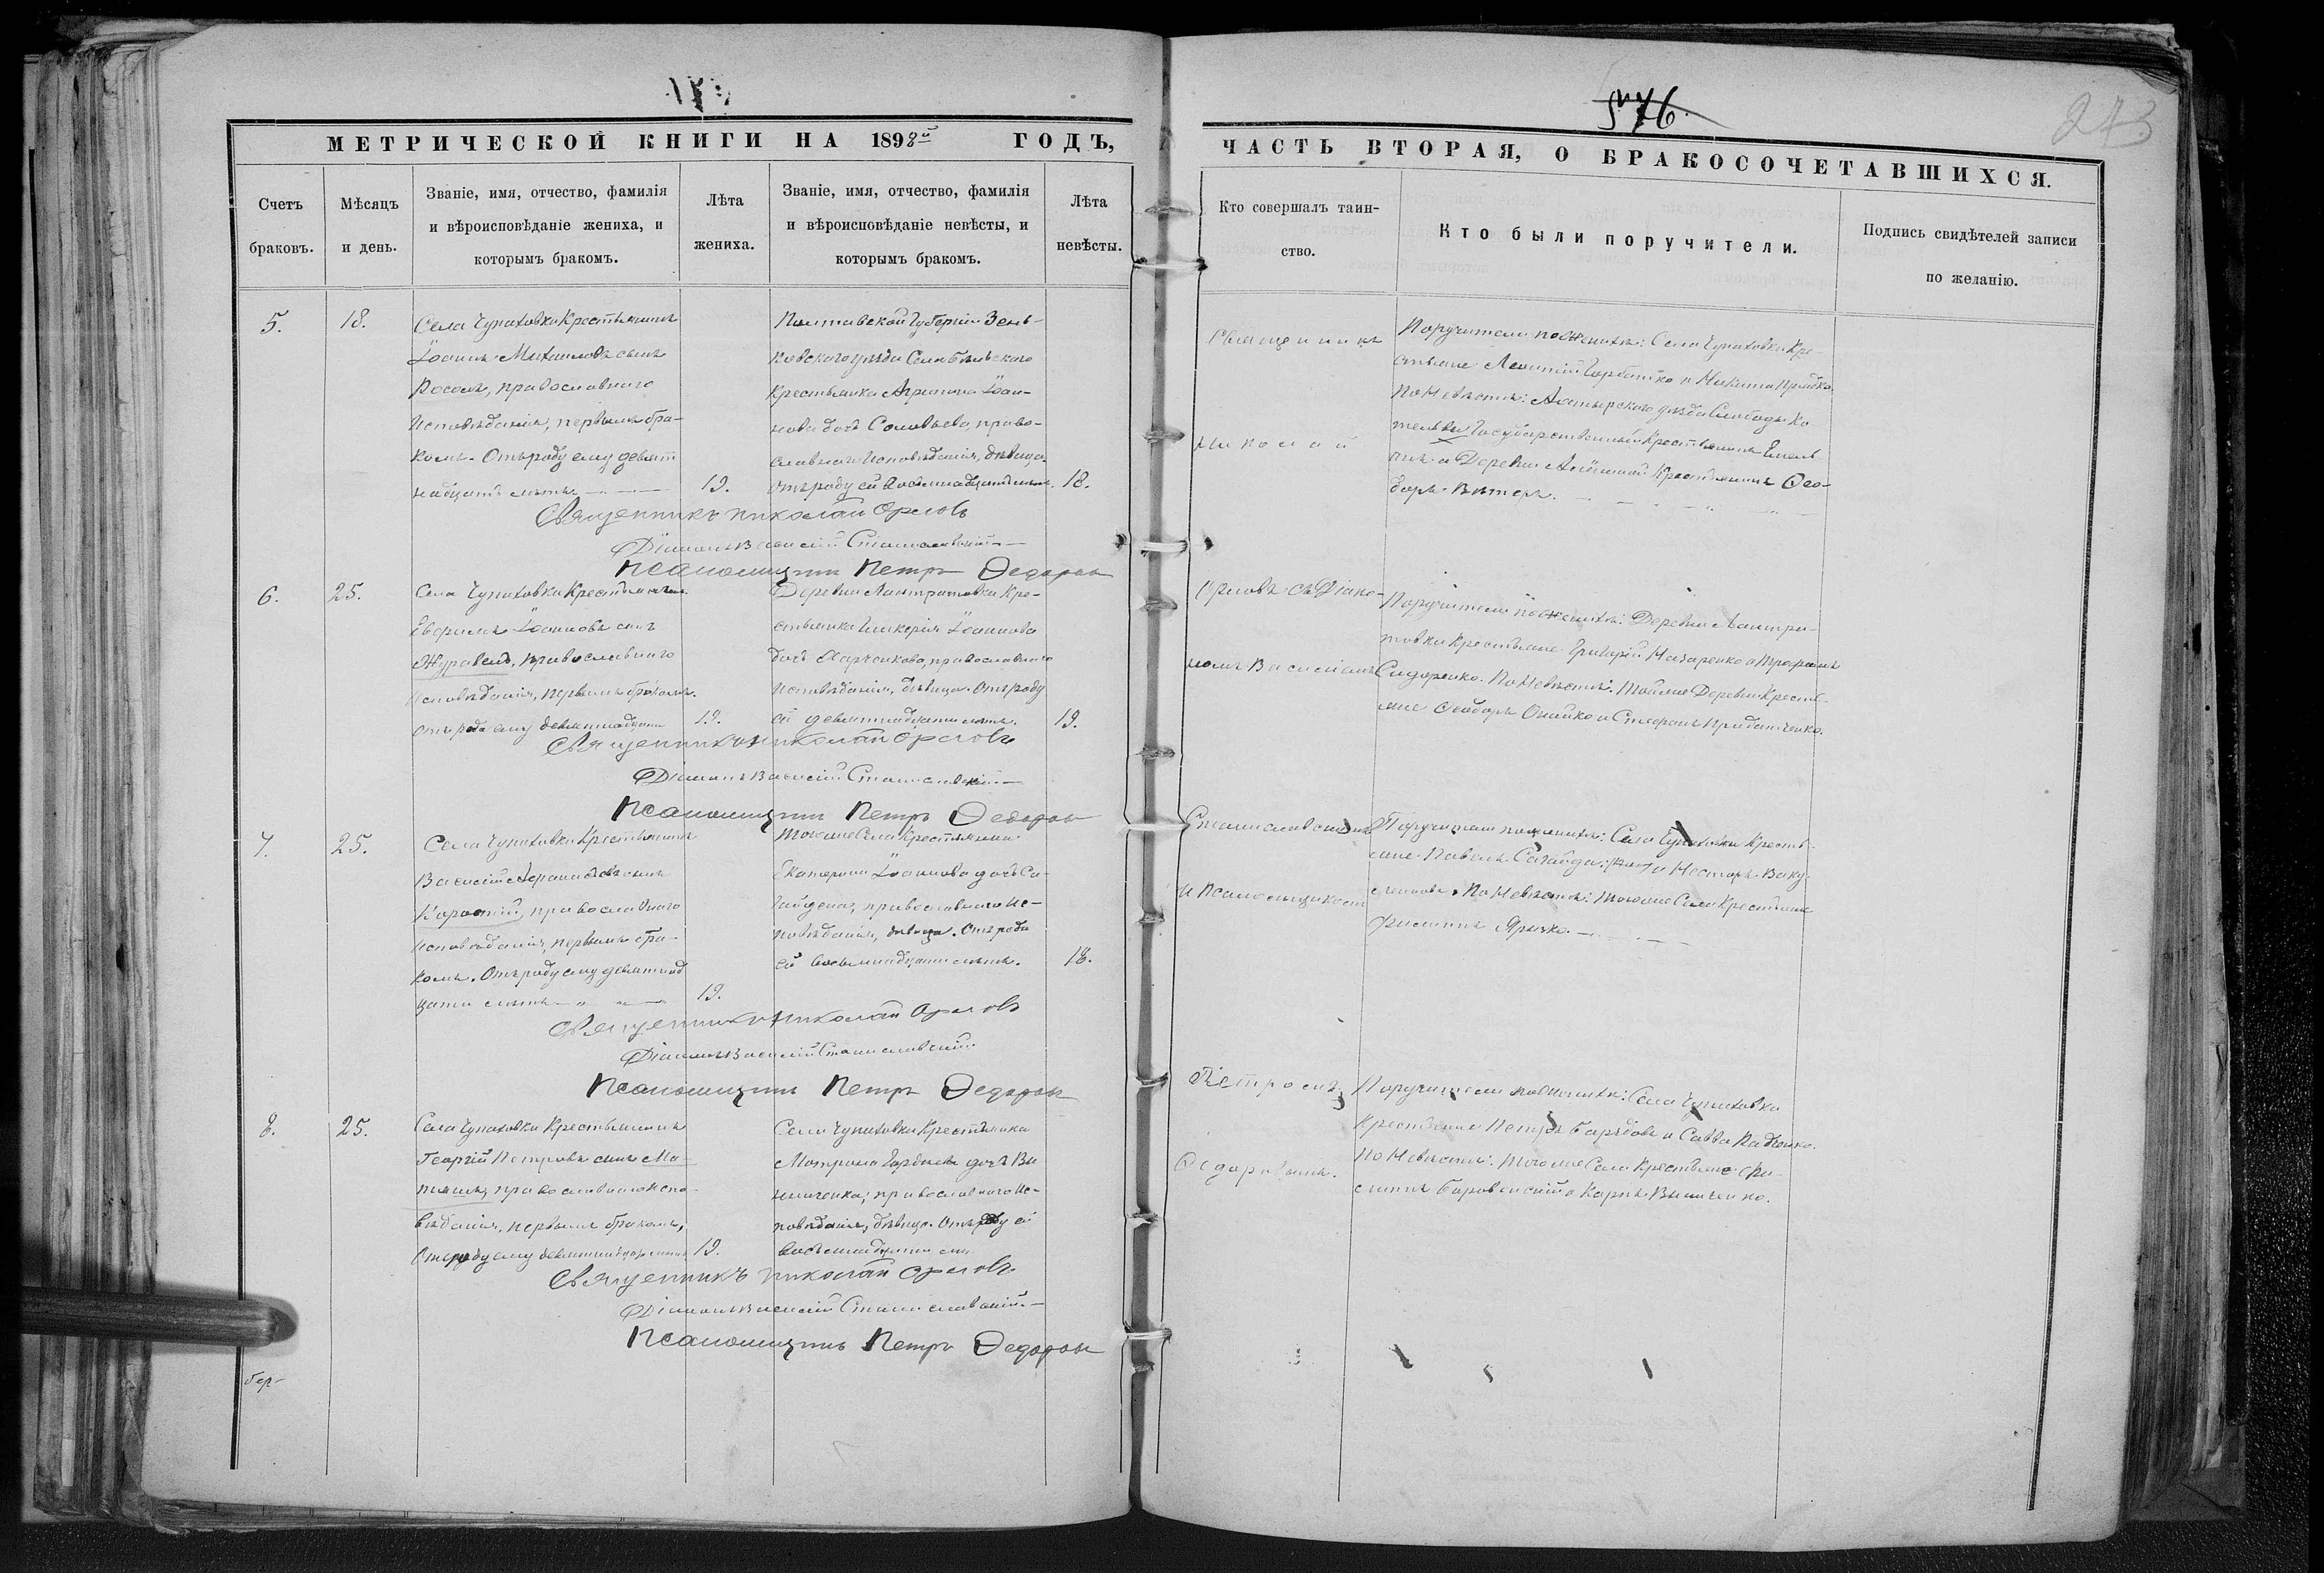 273
МЕТРИЧЕСКОЙ КНИГИ НА 1898й ГОДЪ,
Счетъ браковъ.
Мѣсяцъ и день.
Званіе, имя, отчество, фамилія
и вѣроисповѣданіе жениха, и
которымъ бракомъ.
Лѣта жениха.
Званіе, имя, отчество, фамилія
и вѣроисповѣданіе невѣсты, и
которымъ бракомъ.
Лѣта невѣсты.
5.
18.
Села Чупаховки Крестьянинъ
Іоаннъ Михаиловъ сынъ
православнаго
Исповѣданія, первымъ бра-
комъ. Отъ роду ему девят
надцать лѣтъ
19.
Полтавской Губерніи Зень-
ковскаго уѣзда Села Бѣльскаго
Крестьянка Агрипина Іоан-
нова дочь Соловьева, право-
славнаго Исповѣданія, дѣвица.
Отъ роду ей восемнадцать лѣтъ.
18.
Священникъ Николай Орловъ
Діаконъ Василій Станиславскій
Псаломщикъ Петръ Ѳедоровъ
6.
25.
Села Чупаховки Крестьянинъ
Іоанновъ сынъ
Журавель, православнаго
Исповѣданія, первымъ бракомъ.
Отъ рода ему девятнадцать
19.
Деревни Лантратовки Кре-
стьянка Гликерія Іоаннова
дочь Марченкова, православнаго
Исповѣданія, дѣвица. Отъ роду
ей девятнадцать лѣтъ.
19.
Священникъ Николай Орловъ
Діаконъ Василій Станиславскій
Псаломщикъ Петръ Ѳедоровъ
7.
25.
Села Чупаховки Крестьянинъ
Василій сынъ
православнаго
исповѣданія, первымъ бра-
комъ. Отъ роду ему девятнад
цать лѣтъ
19.
Того же Села Крестьянка
Екатерина Іоаннова дочь Са-
гайдена, православнаго Ис-
повѣданія, дѣвица. Отъ рода
ей восемнадцать лѣтъ.
18.
Священникъ Николай Орловъ
Діаконъ Василій Станиславскій
Псаломщикъ Петръ Ѳедоровъ
8.
25.
Села Чупаховки Крестьянинъ
Георгій Петровъ сынъ Ма-
православнаго Испо-
вѣданія, первымъ бракомъ,
Отъ роду ему девятнадцать лѣтъ
19.
Села Чупаховки Крестьянка
Матрона Гордѣева дочь Ви
ниченка, православнаго Ис-
повѣданія, дѣвица. Отъ роду ей
восемнадцать лѣтъ
Священникъ Николай Орловъ
Діаконъ Василій Станиславскій
Псаломщикъ Петръ Ѳедоровъ
ЧАСТЬ ВТОРАЯ, О БРАКОСОЧЕТАВШИХСЯ.
Кто совершалъ таин-
ство.
Кто были поручители.
Подпись свидѣтелей записи
по желанію.
Священникъ
Николай
Орловъ съ Діако-
номъ Василіемъ
Станиславскимъ
и Псаломщикомъ
Петромъ
Ѳедоровымъ.
Поручители по женихѣ: Села Чупаховки Кре-
стьяне Леонтій Горбатко и Никита
По Невѣстѣ: Ахтырскаго уѣзда Слободы Ко
тельвы Государственный Крестьянинъ
и Деревни Крестьянинъ Ѳео-
доръ
Поручители по женихѣ: Деревни Лантра-
товки Крестьяне Григорій Назаренко и Трофимъ
Сидоренко. По Невѣстѣ: Той же Деревни Кресть-
яне Ѳеодоръ Онайко и Стефанъ Придатченко.
Поручители по женихѣ: Села Чупаховки Кресть-
яне Павелъ Сагайда и Несторъ Ваку-
ленковъ. По Невѣстѣ: того же Села Крестьяне
Филиппъ
Поручители по женихѣ: Села Чупаховки
Крестьяне Петръ и Савва
По Невѣстѣ: Того же Села Крестьяне Фи-
липпъ Боровенскій и Карпъ